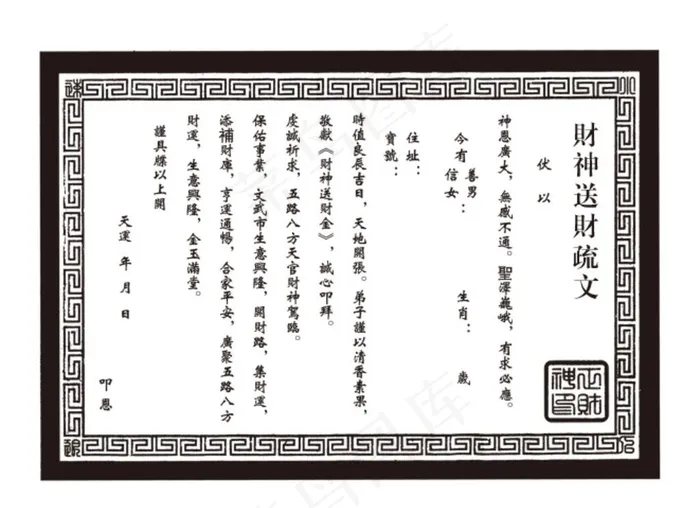 財神送財疏文
伏以
神恩廣大，無感不通。聖澤巍峨，有求必應。
今有 善男 信女： 生肖： 歲
住址：
寶號：
時值良辰吉日，天地開張。弟子謹以清香素果，
敬獻《財神送財金》，誠心叩拜。
虔誠祈求，五路八方天官財神駕臨。
保佑事業，文武市生意興隆，開財路，集財運，
添補財庫，亨運通暢，合家平安，廣聚五路八方
財運，生意興隆，金玉滿堂。
謹具牒以上開
天運 年 月 日
叩恩
正財神印